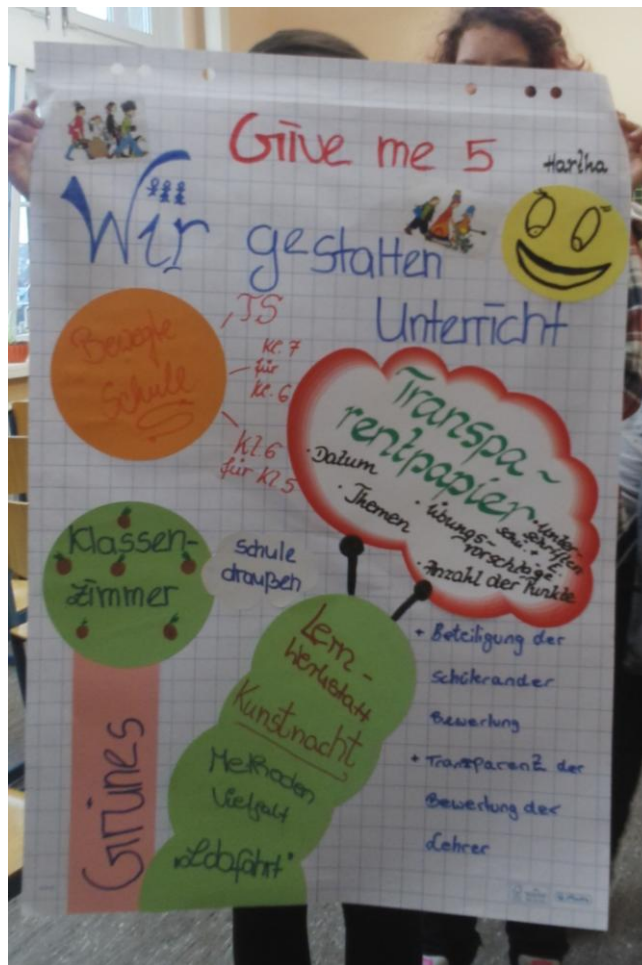 Give me 5
Hartha
Wir gestalten
Unterricht
Bewegte
Schule
TS
Kl. 7
für
Kl. 6
Kl. 6
für Kl. 5
Transpa-
rentpapier
· Datum
· Themen
· Übungs-
vorschläge
· Unter-
schriften
Sch. + E
· Anzahl der Punkte
Klassen-
zimmer
Grünes
Schule
draußen
Lern-
werkstatt
Kunstnacht
Methoden
Vielfalt
+ Beteiligung der
Schüler an der
Bewertung
+ Transparenz der
Bewertung der
Lehrer